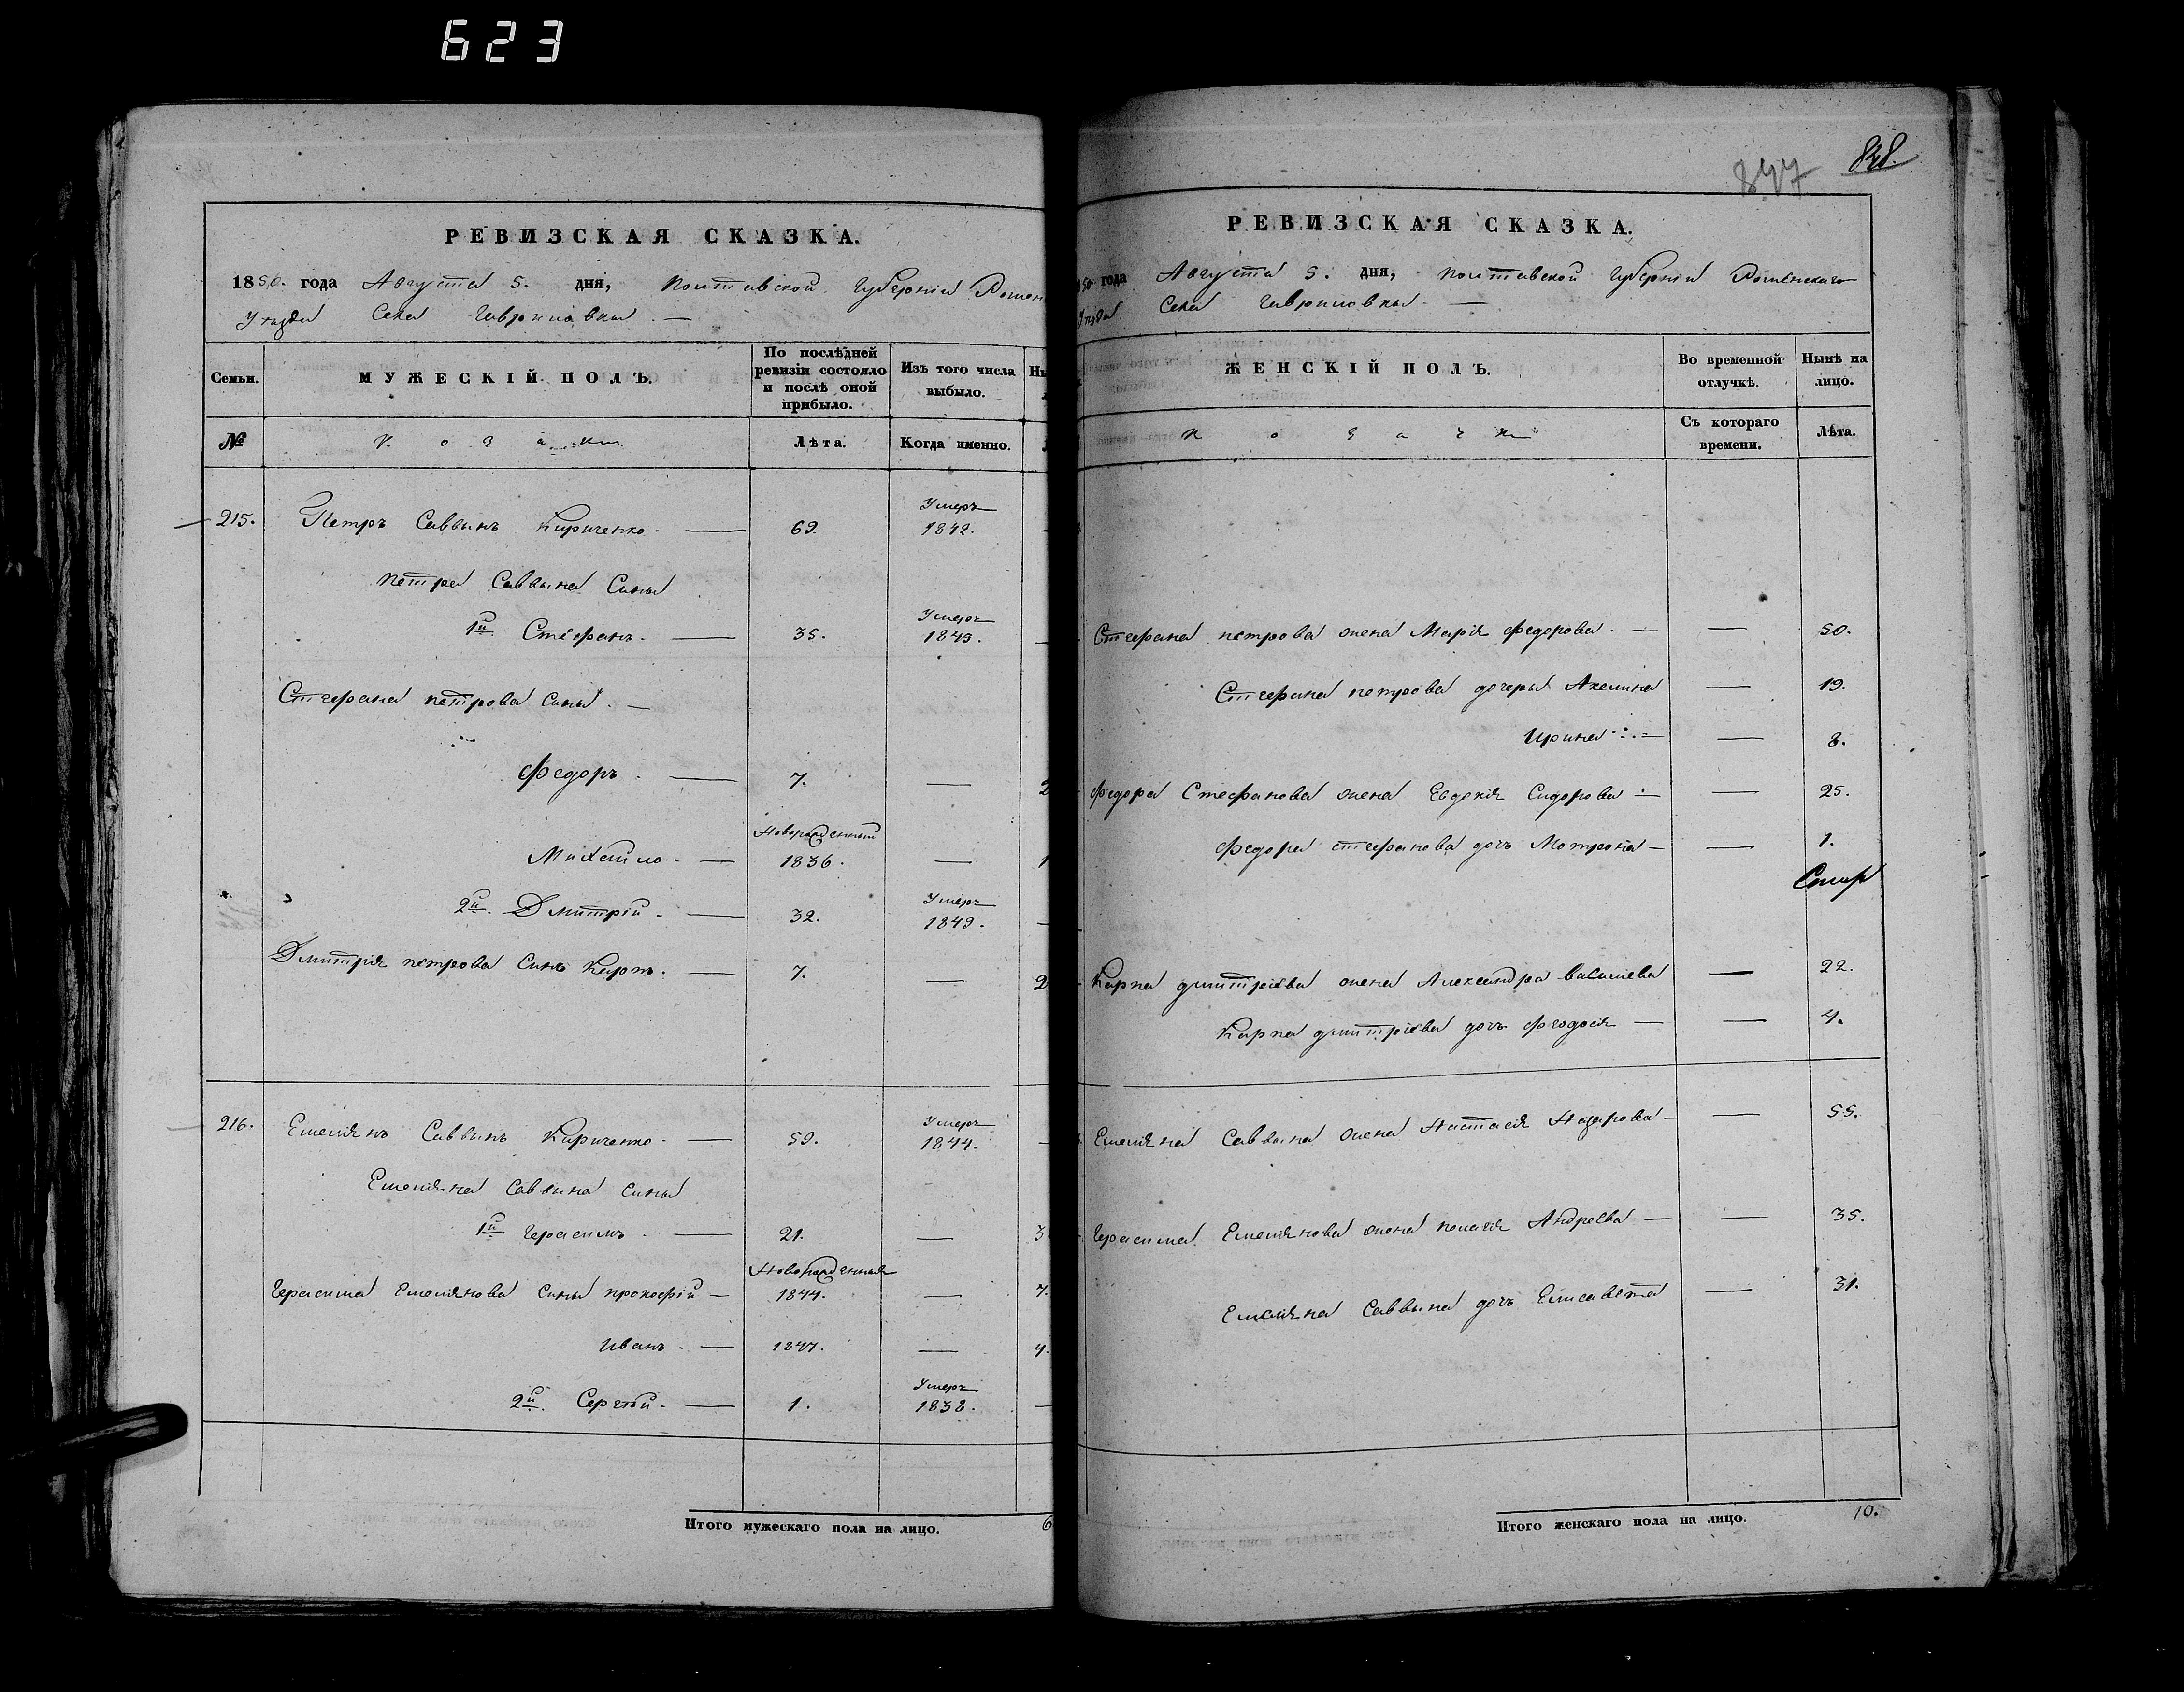 623
847 848.
РЕВИЗСКАЯ СКАЗКА.
1850. года Августа 5. дня, Полтавской Губерніи Ромен
Уѣзда Села Гавриловки. —
Семьи. МУЖЕСКІЙ ПОЛЪ. По послѣдней ревизіи состояло и послѣ оной прибыло. Изъ того числа выбыло. Ны
№ Козаки Лѣта. Когда именно.
215. Петръ Саввинъ Кириченко. — 69. Умеръ 1842.
Петра Саввина Сины
1й Стефанъ. — 35. Умеръ 1843.
Стефана Петрова Сины. —
Федоръ. — 7. — 2
Михайло. — Новорожденный 1836. — 1
2й. Дмитрій. — 32. Умеръ 1849. —
Дмитрія Петрова Синъ Карпъ. — 7. — 2
216. Емельянъ Саввинъ Кириченко. — 59. Умеръ 1844. —
Емельяна Саввина Сины
1й Герасимъ. — 21. — 3
Герасима Емельянова Сины Прокофій — Новорожденныя 1844. — 7.
Иванъ. — 1847. — 4.
2й. Сергѣй. — 1. Умеръ 1838. —
Итого мужескаго пола на лицо. 6
РЕВИЗСКАЯ СКАЗКА.
50 года Августа 5. дня, Полтавской Губерніи Роменскаго
Уѣзда Села Гавриловки. —
ЖЕНСКІЙ ПОЛЪ. Во временной отлучкѣ. Нынѣ на лицо.
Козачки Съ котораго времени. Лѣта.
Стефана Петрова жена Марія Федорова. — — 50.
Стефана Петрова дочеры Акелина — 19.
Ирина — — 8.
Федора Стефанова жена Евдокія Сидорова — — 25.
Федора Стефанова дочь Мотрона — — 1.
Карпа Дмитріева жена Александра Василіева — 22.
Карпа Дмитріева дочь Феодосія — — 4.
Емельяна Саввина жена Настасія Назарова — — 55.
Герасима Емельянова жена Пелагія Андреева — — 35.
Емельяна Саввина дочь Елисавета — 31.
Итого женскаго пола на лицо. 10.